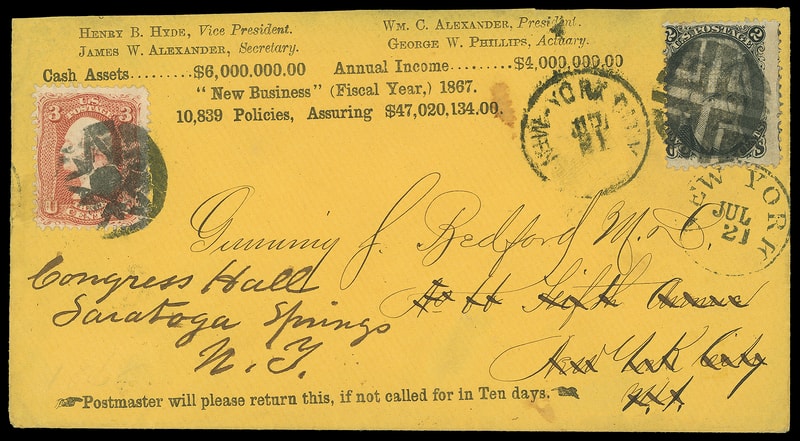 HENRY B. HYDE, Vice President.
WM. C. ALEXANDER, President.
JAMES W. ALEXANDER, Secretary.
GEORGE W. PHILLIPS, Actuary.
Cash Assets.........$6,000,000.00 Annual Income.........$4,000,000.00
"New Business" (Fiscal Year,) 1867.
10,839 Policies, Assuring $47,020,134.00.
U.S. POSTAGE
3 3
U
CENTS
U.S. POSTAGE
2 2
NEW-YORK CITY
JUL
21
NEW YORK
JUL
21
Gunning J. Bedford M.D.
No 66 Fifth Avenue
New York City
N.Y.
Congress Hall
Saratoga Springs
N.Y.
Postmaster will please return this, if not called for in Ten days.